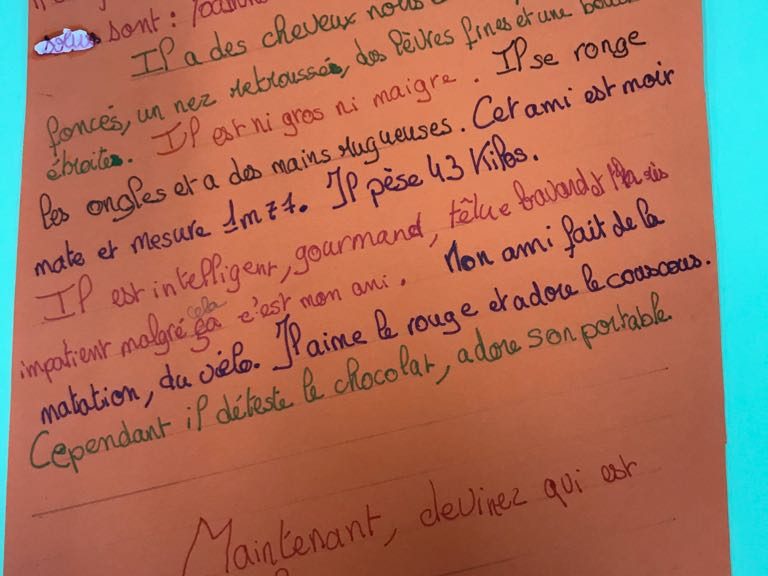 sont :
Il a des cheveux
foncés, un nez retroussé, des lèvres fines et une
étroite. Il est ni gros ni maigre. Il se ronge
les ongles et a des mains rugueuses. Cet ami est noir
mate et mesure 1m71. Il pèse 43 Kilos.
Il est intelligent, gourmand, têtue bavard
impatient malgré ça cela c'est mon ami. Mon ami fait de la
natation, du vélo. Il aime le rouge et adore le couscous.
Cependant il déteste le chocolat, adore son portable
Maintenant, devinez qui est